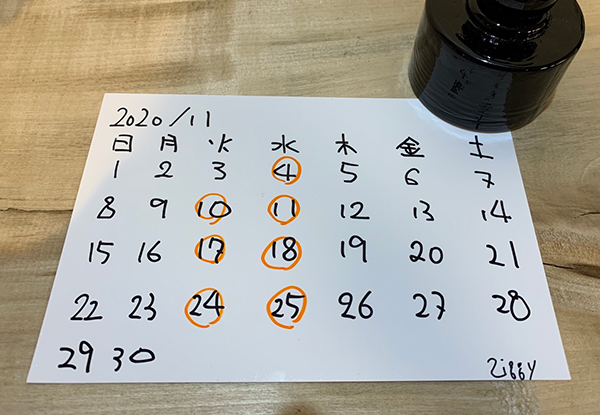 2020/11
日 月 火 水 木 金 土
1 2 3 4 5 6 7
8 9 10 11 12 13 14
15 16 17 18 19 20 21
22 23 24 25 26 27 28
29 30
ziggy